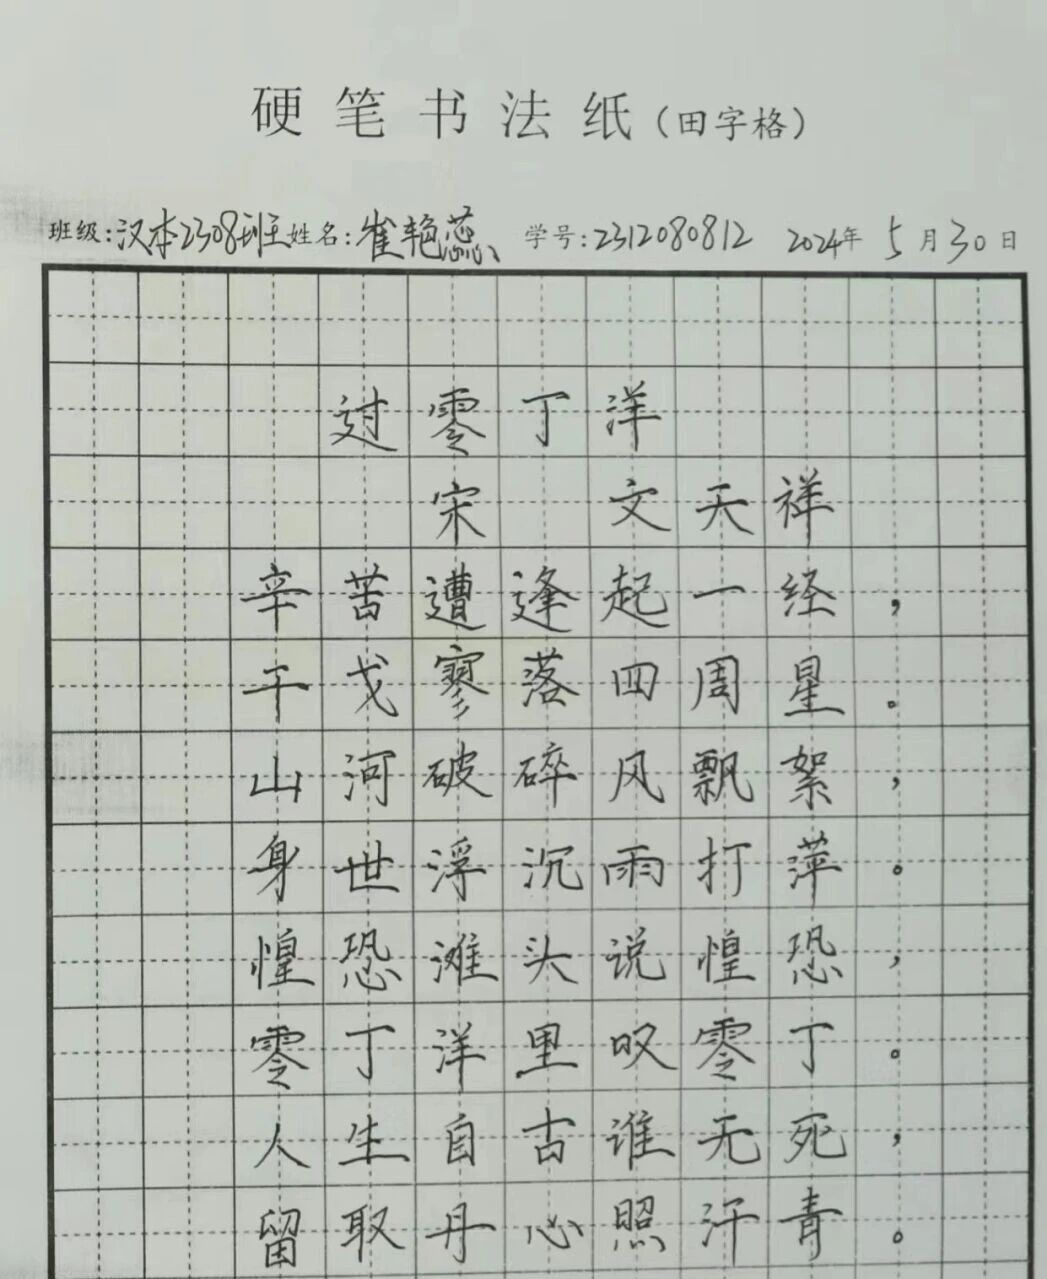 硬笔书法纸(田字格)
班级:汉本2308班 姓名:崔艳蕊 学号:2312080812 2024年5月30日
过零丁洋
宋 文天祥
辛苦遭逢起一经,
干戈寥落四周星。
山河破碎风飘絮,
身世浮沉雨打萍。
惶恐滩头说惶恐,
零丁洋里叹零丁。
人生自古谁无死,
留取丹心照汗青。